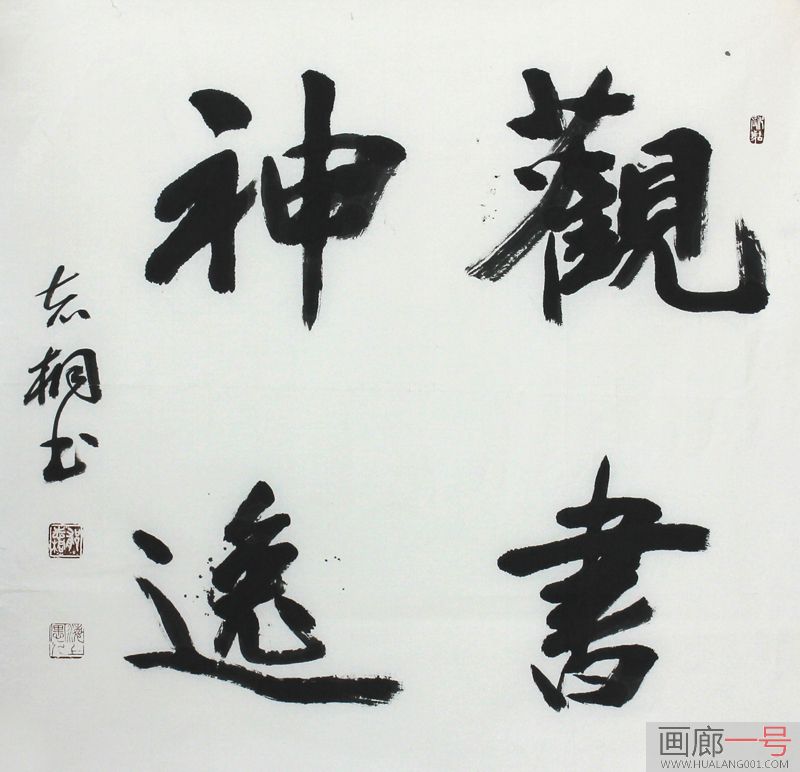 觀書
神逸
志桐书
海上
画廊一号
WWW.HUALANG001.COM